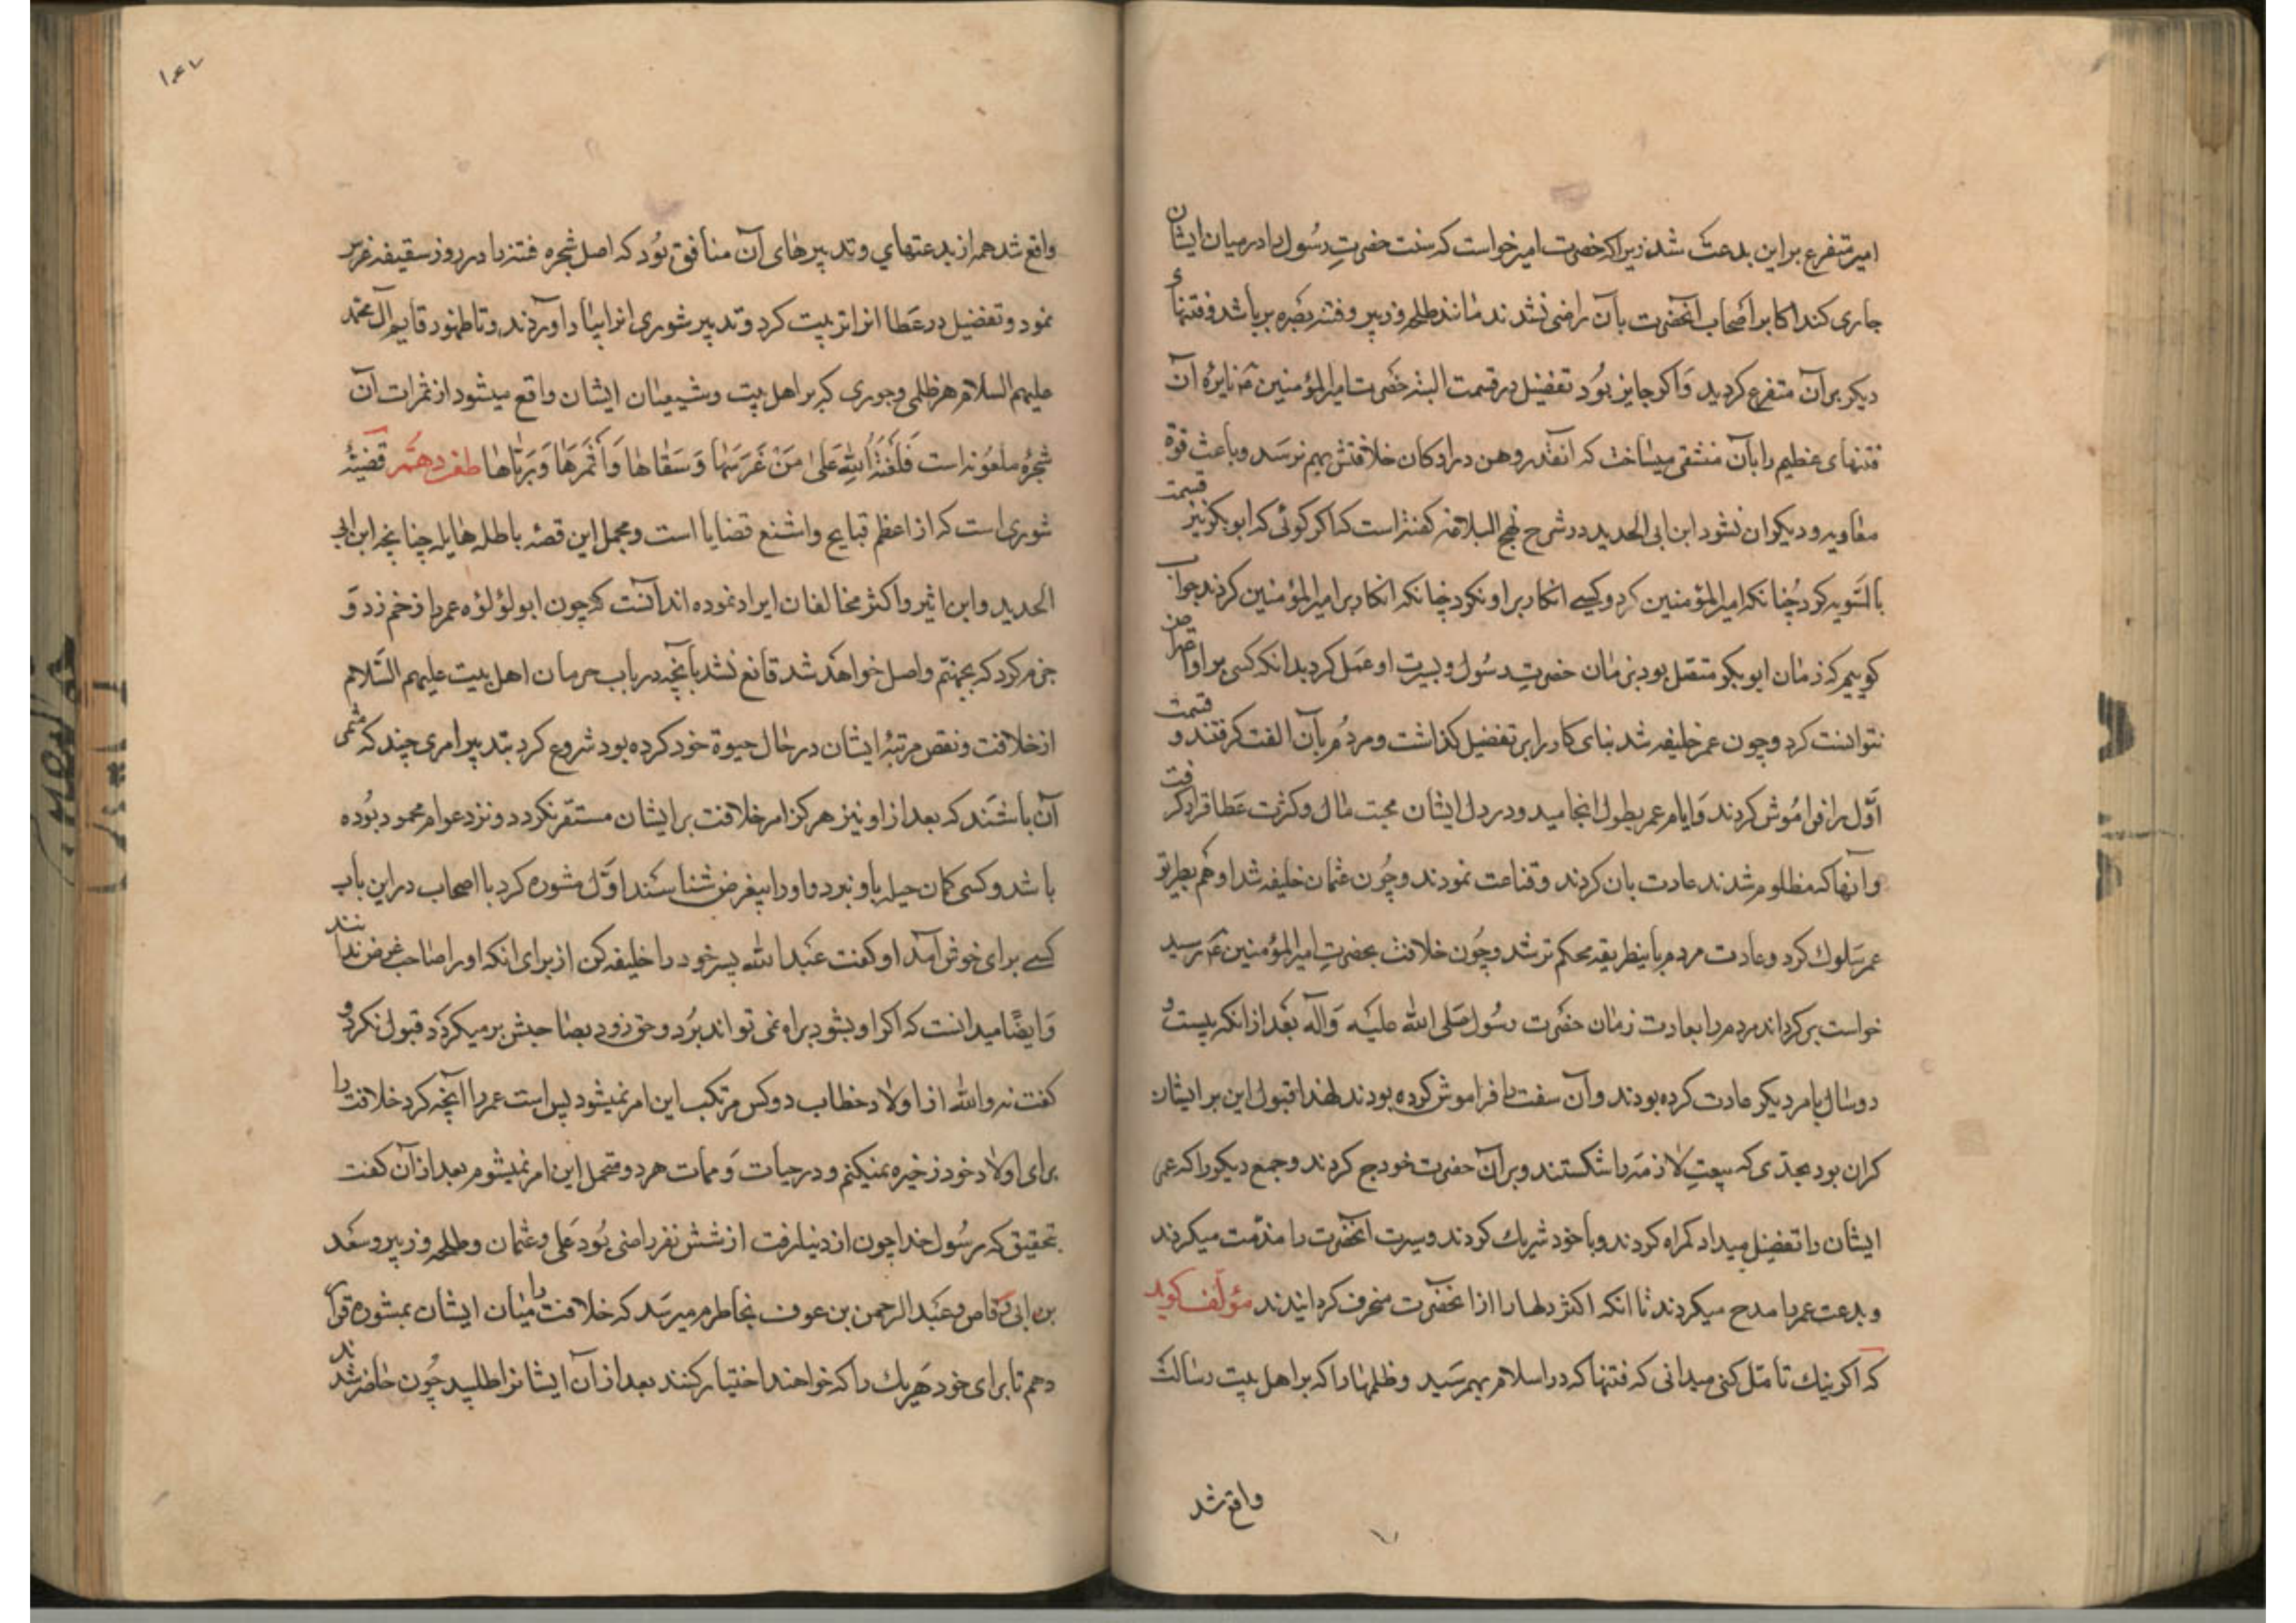 امیر متفرع بر این بدعت شد زیرا که حضرت امیر خواست که سنت حضرتِ رسُول را در میان ایشان
جاری کند اکابر اصحاب آنحضرت بآن راضی نشدند مانند طلحه و زبیر و فتنه بصره برپا شد و فتنهاء
دیکر بر آن متفرع کردید وَ اکر جایز بوُد تفضیل در قسمت البته حضرت امیرالمؤمنین ع نایرهٔ آن
فتنهای عظیم را بآن منتفی میساخت که انقدر وهن در ارکان خلافتش بهم نرسَد و باعث قوّة
معاویه و دیکران نشود ابن ابی الحدید در شرح نهج البلاغه کفته است که اکر کوئی که ابوبکر نیز قسمت
بالسَّویه کرد چُنانکه امیرالمؤمنین کرد و کسی انکار بر او نکرد چنانکه انکار بر امیرالمؤمنین کردند جواب
کوییم که زمان ابوبکر متصل بود بزمان حضرتِ رسُول و بسیرت او عمَل کرد بدانکه کسی بر او اعتراض
نتوانست کرد و چون عمر خلیفه شد بنای کار را بر تفضیل کذاشت و مردُم بآن الفت کرفتند و قسمت
اَوّل را فراموُش کردند وَ ایام عمر بطول انجامید و در دل ایشان محبت مال و کثرت عَطا قرار کرفت
و آنها که مظلوم شدند عادت بان کردند و قناعت نمودند و چُون عثمان خلیفه شد او هم بطریق
عمر سَلوك کرد و عادت مردم باینطریقه محکم تر شد و چُون خلافت بحضرتِ امیرالمؤمنین ع رسید
خواست بر کرداند مردم را بعادت زمان حضرت رسُول صَلی الله علیَه وَآله بعَد از انکه بیست و
دو سال بامر دیکر عادت کرده بودند و آن سفت را فراموش کرده بودند لهذا قبول این بر ایشان
کران بود بحدّی که بیعتِ لازمه را شکستند و بر آن حضرت خروج کردند و جمع دیکر را که عمر
ایشان را تفضیل میداد کمراه کردند و با خود شریك کردند و سیرت انحضرت را مذمّت میکردند
و بدعت عمر را مدح میکردند تا انکه اکثر دلها را از انحضرت منحرف کردانیدند مؤلّف کوید
که اکر نیك تأمّل کنی میدانی که فتنها که در اسلام بهم رسَید و ظلمها را که بر اهل بیت رسالت
واقع شد
۱۰۴۷
واقع شد همه از بدعتهای و تدبیرهای آن منافق بوُد که اصل شجره فتنه را در روز سقیفه غرس
نمود و تفضیل در عَطا انرا تربیت کرد و تدبیر شوری انرا بپا در آوردند و تا ظهور قایم آل محمّد
علیهم السلام هر ظلمی و جوری که بر اهل بیت و شیعیان ایشان واقع میشود از ثمرات آن
شجرهٔ ملعونه است فَلَعْنَةُ اللهِ عَلیٰ مَنْ غَرَسَهٰا وَ سَقٰاهٰا وَ أَثْمَرَهٰا وَ رَبّٰاهٰا طعن دهم قضیّهٔ
شوری است که از اعظم قبایح و اشنع قضایا است و مجمل این قصهٔ باطله هایله چنانچه ابن ابی
الحدید و ابن اثیر و اکثر مخالفان ایراد نموده اند آنست که چون ابولؤلؤه عمر را زخم زد وَ
جزم کرد که بجهنّم واصل خواهد شد قانع نشد بآنچه در باب حرمان اهل بیت علیهم السَّلام
از خلافت و نقص مرتبهٔ ایشان در حال حیوة خود کرده بود شروع کرد بتدبیر امری چند که مثمر
آن باشَند که بعد از او نیز هرکز امر خلافت بر ایشان مستقّر نکردد و نزد عوام محمود بوُده
باشد و کسی کمان حیله باو نبرد و او را بیغرض شناسَند اوَّل مشوره کرد با اصحاب در این باب
کسی برای خوش آمد او کفت عَبدالله پسر خود را خلیفه کن از برای انکه او را صاحب غرض ندانند
وَ ایضًا میدانست که اکر او بشود براه نمی تواند برُد و حق زود بصاحبش بر میکردَد قبول نکرد و
کفت نه والله از اولاد خطاب دو کس مرتکب این امر نمیشود بس است عمر را آنچه کرد خلافت را
برای اولاد خود ذخیره نمیکنم و در حیات وَ ممات هر دو متحمل این امر نمیشوم بعد از آن کفت
بتحقیق که رسُول خدا چون از دنیا رفت از شش نفر راضی بُود عَلی و عثمان و طلحه و زبیر و سعَد
بن ابی وقاص و عَبد الرحمن بن عوف بخاطرم میرسَد که خلافت را میٰان ایشان بمشوره قرار
دهم تا برای خود هَریك را که خواهند اختیار کنند بعد از آن ایشانرا طلبید چُون حاضر شدند